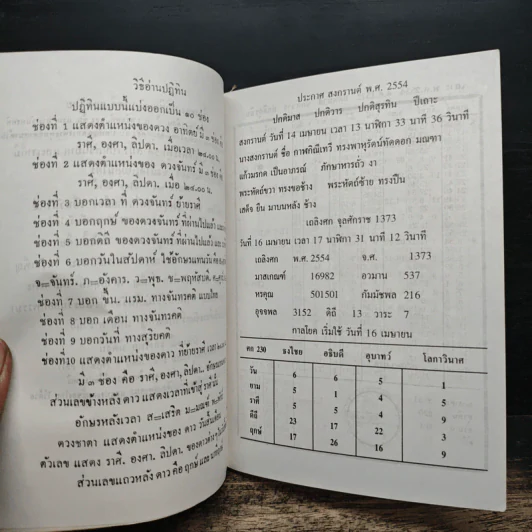 วิธีอ่านปฏิทิน
ปฏิทินแบบนี้แบ่งออกเป็น ๑๐ ช่อง
ช่องที่ 1 แสดงตำแหน่งของดวง อาทิตย์ มี ๓ ช่อง
ราศี, องศา, ลิปดา. เมื่อเวลา ๒๔.๐๐ น.
ช่องที่ 2 แสดงตำแหน่งของ ดวงจันทร์ มี ๓ ช่อง
ราศี, องศา, ลิปดา. เมื่อ ๒๔.๐๐ น.
ช่องที่ 3 บอกเวลา ที่ ดวงจันทร์ ย้ายราศี
ช่องที่ 4 บอกฤกษ์ ของดวงจันทร์ ที่ผ่านไปแล้ว
ช่องที่ 5 บอกดิถี ของดวงจันทร์ ที่ผ่านไปแล้ว
ช่องที่ 6 บอกวันในสัปดาห์ ใช้อักษรแทน
จ=จันทร์. ภ=อังคาร. ว=พุธ. ช=พฤหัสบดี.
ช่องที่ 7 บอก ขึ้น. แรม. ทางจันทรคติ แบบไทย
ช่องที่ 8 บอก เดือน ทางจันทรคติ
ช่องที่ 9 บอกวันที่ ทางสุริยคติ
ช่องที่10 แสดงตำแหน่งของดาว ที่ย้ายราศี เวลา
มี ๓ ช่อง คือ ราศี, องศา, ลิปดา.
ส่วนเลขข้างหลัง ดาว แสดงเวลาที่เข้าสู่ ราศี นั้น
อักษรหลังเวลา ส=เสริด ม=มณฑ์
ดวงชาตา แสดงตำแหน่งของ ดาว วันสิ้นเดือน
ตัวเลข แสดง ราศี. องศา. ลิปดา. ของดาวต่างๆ
ส่วนเลขแถวหลัง ดาว คือ ฤกษ์ และ
ประกาศ สงกรานต์ พ.ศ. 2554
ปกติมาส ปกติวาร ปกติสุรทิน ปีเถาะ
สงกรานต์ วันที่ 14 เมษายน เวลา 13 นาฬิกา 33 นาที 36 วินาที
นางสงกรานต์ ชื่อ กาฬกิณีเทวี ทรงพาหุรัตน์ทัดดอก มณฑา
แก้วมรกต เป็นอาภรณ์ ภักษาหารถั่ว งา
พระหัตถ์ขวา ทรงขอช้าง พระหัตถ์ซ้าย ทรงปืน
เสด็จ ยืน มาบนหลัง ช้าง
เถลิงศก จุลศักราช 1373
วันที่ 16 เมษายน เวลา 17 นาฬิกา 31 นาที 12 วินาที
เถลิงศก พ.ศ. 2554 จ.ศ. 1373
มาสเกณฑ์ 16982 อวมาน 537
หรคุณ 501501 กัมมัชพล 216
อุจจพล 3152 ดิถี 13 วาระ 7
กาลโยค เริ่มใช้ วันที่ 16 เมษายน
ศก 230 ธงไชย อธิบดี อุบาทว์ โลกาวินาศ
วัน 6 6 5 1
ยาม 5 1 4 5
ราศี 5 5 4 9
ดิถี 23 17 22 3
ฤกษ์ 17 26 16 9